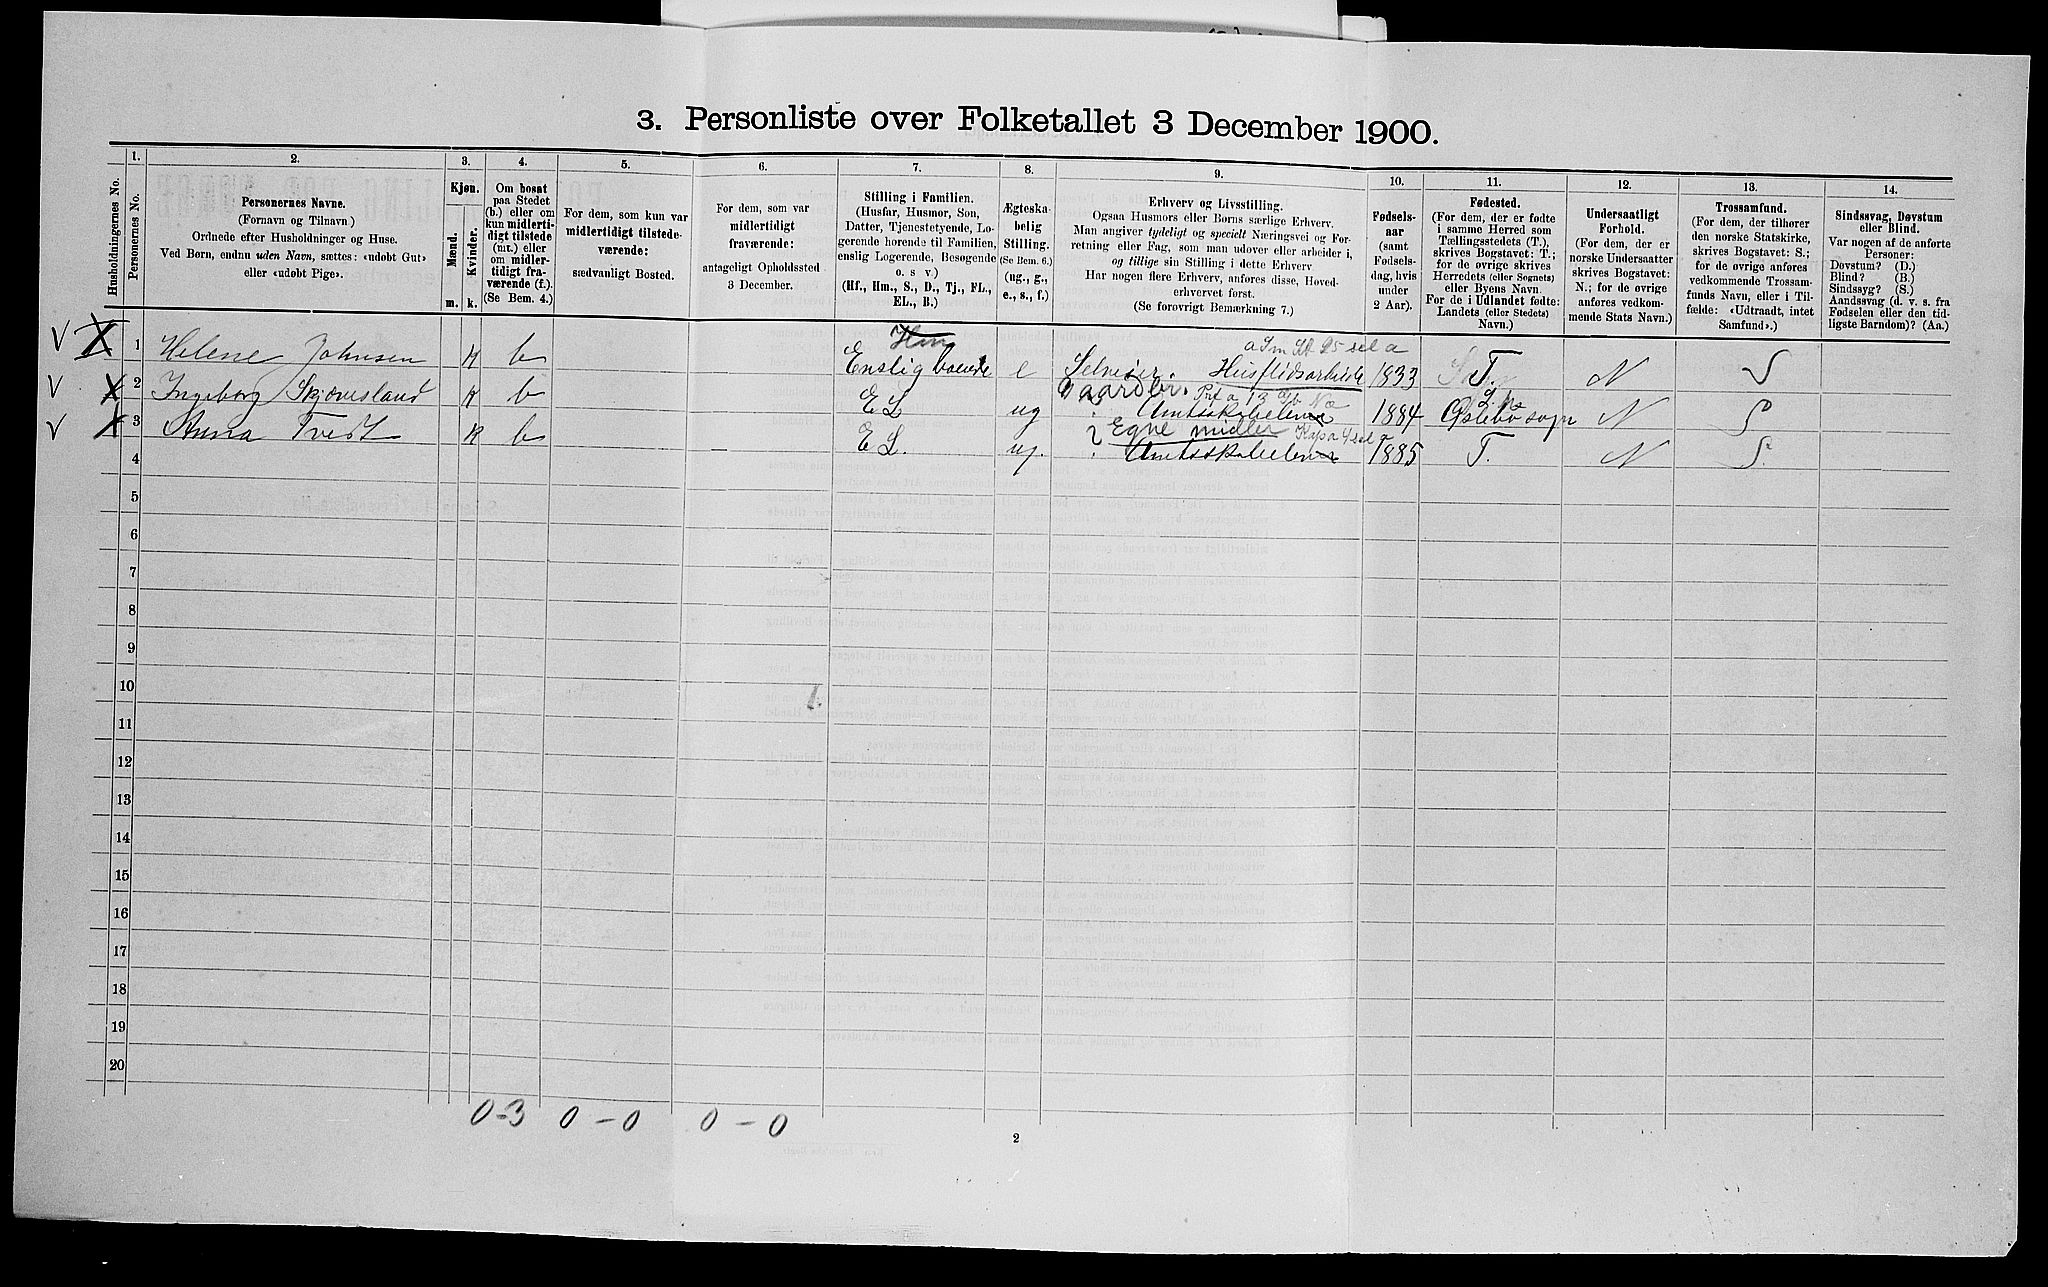 3. Personliste over Folketallet 3 December 1900.
Husholdningernes No.
1.
Personernes No.
2.
Personernes Navne.
(Fornavn og Tilnavn)
Ordnede efter Husholdninger og Huse.
Ved Børn, endnu uden Navn, sættes: «udøbt Gut»
eller «udøbt Pige».
3.
Kjøn.
Mænd.
Kvinder.
m.
k.
4.
Om bosat
paa Stedet
(b.) eller om
kun midlerti-
digt tilstede
(mt.) eller
om midler-
tidigt fra-
værende (f.).
(Se Bem. 4.)
5.
For dem, som kun var
midlertidigt tilstede-
værende:
sædvanligt Bosted.
6.
For dem, som var
midlertidigt
fraværende:
antageligt Opholdssted
3 December.
7.
Stilling i Familien.
(Husfar, Husmor, Søn,
Datter, Tjenestetyende, Lo-
gerende hørende til Familien,
enslig Logerende, Besøgende
o. s v.)
(Hf., Hm., S., D., Tj., FL.,
EL., B.)
8.
Ægteska-
belig
Stilling.
(Se Bem. 6.)
(ug., g.,
e., s., f.)
9.
Erhverv og Livsstilling.
Ogsaa Husmors eller Børns særlige Erhverv.
Man angiver tydeligt og specielt Næringsvei og For-
retning eller Fag, som man udøver eller arbeider i,
og tillige sin Stilling i dette Erhverv
Har nogen flere Erhverv, anføres disse, Hoved-
erhvervet først.
(Se forøvrigt Bemærkning 7.)
10.
Fødsels-
aar
(samt
Fødsels-
dag, hvis
under
2 Aar).
11.
Fødested.
(For dem, der er fødte
i samme Herred som
Tællingsstedets (T.),
skrives Bogstavet: T.;
for de øvrige skrives
Herredets (eller Sognets)
eller Byens Navn.
For de i Udlandet fødte:
Landets (eller Stedets)
Navn.)
12.
Undersaatligt
Forhold.
(For dem, der er
norske Undersaatter
skrives Bogstavet:
N.; for de øvrige
anføres vedkom-
mende Stats Navn.)
13.
Trossamfund.
(For dem, der tilhører
den norske Statskirke,
skrives Bogstavet: S.;
for de øvrige anføres
vedkommende Trossam-
funds Navn, eller i Til-
fælde: «Udtraadt, intet
Samfund».)
14.
Sindssvag, Døvstum
eller Blind.
Var nogen af de anførte
Personer:
Døvstum? (D.)
Blind? (B.)
Sindssyg? (S.)
Aandssvag (d. v. s. fra
Fødselen eller den tid-
ligste Barndom)? (Aa.)
V X 1 Helene Johnsen k b Hm Enslig boende e Selveier. Husflidsarbeide 1833 T. N S
Gaardbr.
V X 2 Ingeborg Skjævesland k b EL ug Amtsskoleelev 1884 Øslebø sogn N S
Egne midler
V X 3 Anna Tvedt k b EL. ug. Amtsskoleelev 1885 T. N S.
4
5
6
7
8
9
10
11
12
13
14
15
16
17
18
19
20
0-3 0-0 0-0
2